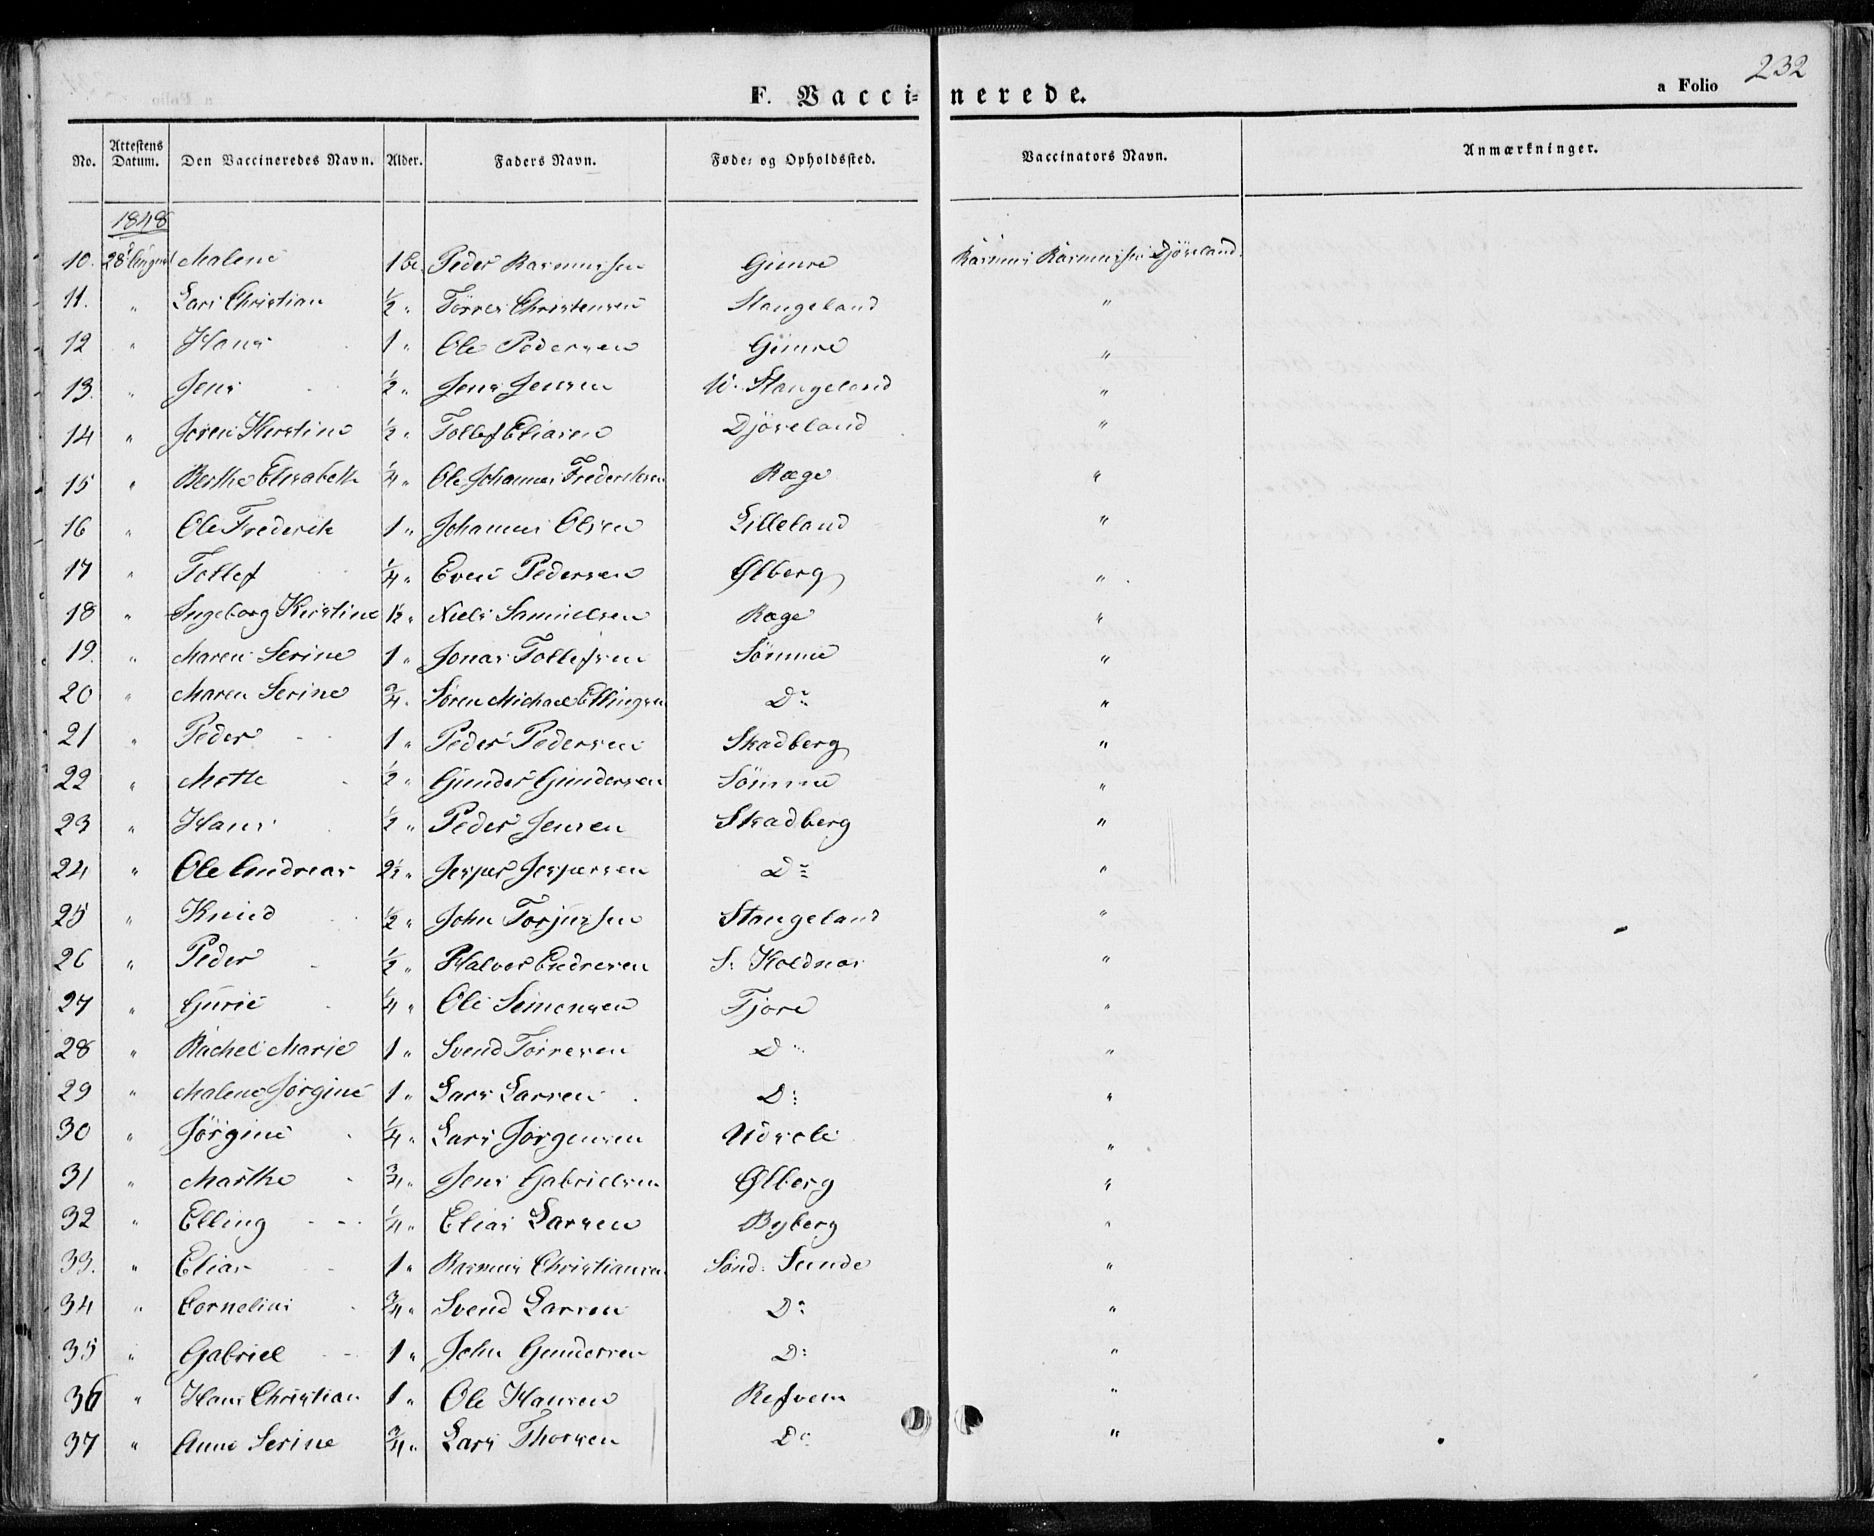 232
F. Vaccinerede. a Folio
No. Attestens Datum. Den Vaccineredes Navn. Alder. Faders Navn. Føde- og Opholdssted. Vaccinators Navn. Anmærkninger.
1848
10. 28 August Malene 1 Peder Rasmussen Gimre Rasmus Rasmussen Djöseland
11. " Lars Christian 1/2 " Törres Christensen Stangeland "
12 " Hans 1 " Ole Pedersen Gimre "
13. " Jens 1/2 " Jens Jensen Stangeland "
14 " Joren Kirstine 1/2 " Tollef Eliasen Djöseland "
15 " Berthe Elisabeth 1/4 " Ole Johannes Frederiksen Ræge "
16 " Ole Frederik 1 " Johannes Olsen Lilleland "
17 " Tollef 1/4 " Even Pedersen Ølberg "
18 " Ingeborg Kirstine 1½ " Niels Samuelsen Ræge "
19. " Maren Serine 1 " Jonas Tollefsen Sömme "
20 " Maren Serine 3/4 " Sören Michael Ellingsen Do "
21 " Peder 1 " Peder Pedersen Skadberg "
22 " Mette 1/2 " Gunder Gundersen Sömme "
23 " Hans 1/2 " Peder Jensen Skadberg "
24 " Ole Andreas 2½ " Jesper Jespersen Do "
25 " Knud 1/2 " John Torjussen Stangeland "
26 " Peder 1/2 " Halvor Endresen S. Koldnæs "
27 " Gurie 1/4 " Ole Simonsen Tjore "
28 " Rachel Marie 1 " Svend Törresen Do "
29 " Malene Jörgine 1 " Lars Larsen D: "
30 " Jörgine 1/4 " Lars Jörgensen Udsole "
31 " Marthe 3/4 " Jens Gabrielsen Ølberg "
32 " Elling 1/4 " Elias Larsen Byberg "
33. " Elias 1 " Rasmus Christiansen Sönd. Sunde "
34 " Cornelius 3/4 " Svend Larsen Do "
35 " Gabriel 1 " John Gundersen D: "
36 " Hans Christian 1 " Ole Hansen Refvem "
37 " Anne Serine 3/4 " Lars Thorsen Do "